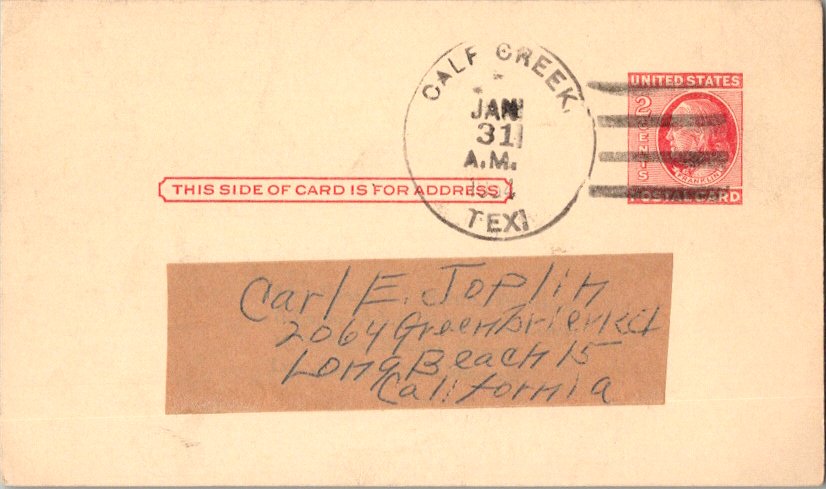 CALF CREEK,
JAN
31
A.M.
TEX
UNITED STATES
2 CENTS
FRANKLIN
POSTAL CARD
THIS SIDE OF CARD IS FOR ADDRESS
Carl E. Joplin
2064 Greenbrier Rd
Long Beach 15
California